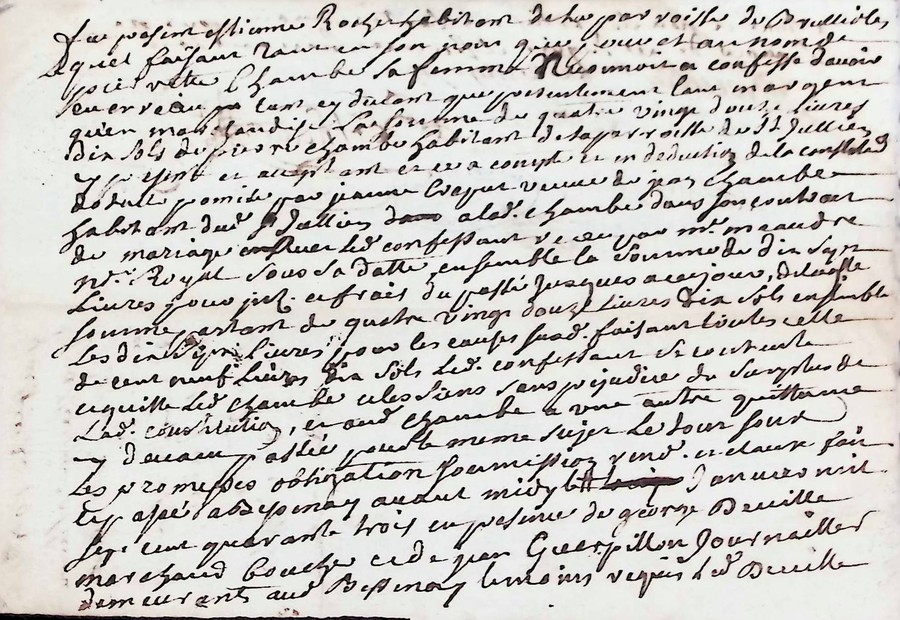 fut present estienne Roche habitant de la parroisse de Brullioles
Lequel faisant tant en son nom que, comme et au nom de
pierrette Chambe sa femme Reconnoit et confesse d'avoir
eu et receu tant cy devant que presentement tant en argent
qu'en marchandise La somme de quatre vingt douze livres
dix sols de pierre chambe habitant de la parroisse de St Jullien
y present et acceptant et ce a compte et en deduction de la constitu͠on
dotale promise par jeanne Crepet veuve de jean chambe
habitant dud. St Jullien a lad. chambe dans son contrat
de mariage avec Led. confessant receu par me. meaudre
nre. Royal sous sa datte, ensemble la somme de dix sept
Livres pour int. et frais du passé jusques a ce jour, de laquelle
somme partant de quatre vingt douze Livres dix sols ensemble
Les dix sept livres pour les causes susd. faisant toutes celle
de cent neuf Livres dix sols Led. confessant se contente
et quitte Led. chambe et les siens sans prejudice du surplus de
Lad. constitution, et aud. chambe a une autre quittance
cy devant passée pour le meme sujet Le tout sous
Les promesses obligation soumission ren. et clause fait
et passé a Bessenay avant midy le janvier mil
sept cent quarante trois en presence de george Deville
marchand boucher et de jean Guerpillon Journallier
demeurants aud. Bessenay temoins requis Led. Deville